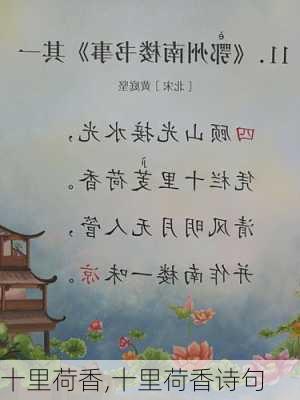 è
11.《鄂州南楼书事》其一
［北宋］黄庭坚
四顾山光接水光，
jì
凭栏十里芰荷香。
清风明月无人管，
并作南楼一味凉。
十里荷香,十里荷香诗句